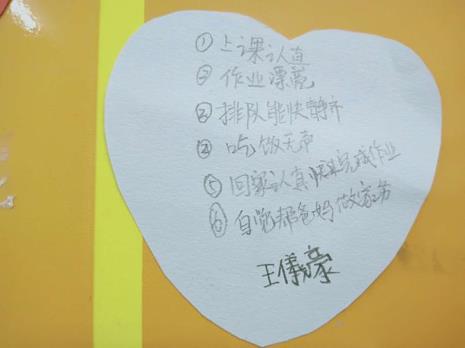 ①上课认真
②作业漂亮
③排队能快静齐
④吃饭无声
⑤回家认真快完成作业
⑥自觉帮爸妈做家务
王儀豪